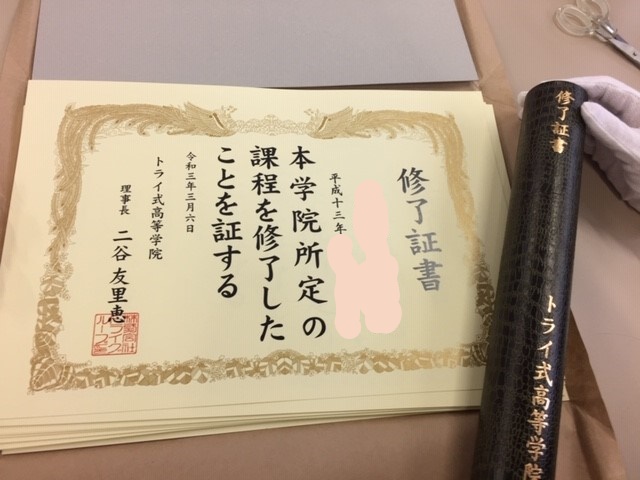 修了証書
平成十三年
本学院所定の
課程を修了した
ことを証する
令和三年三月六日
トライ式高等学院
理事長 二谷友里恵
株式会社
トライグ
ループ
修了証書
トライ式高等学院